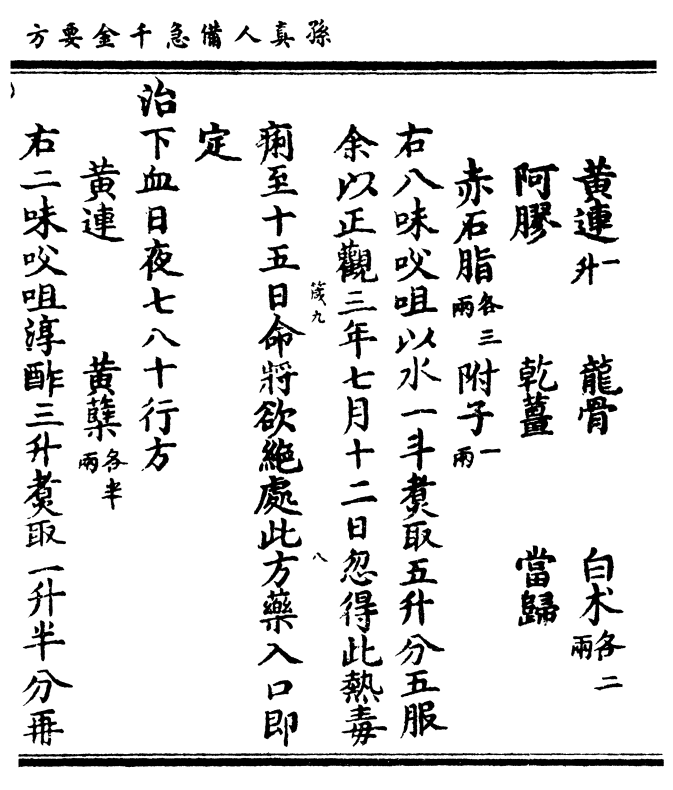 孫真人備急千金要方
黃連一升　龍骨　白朮各二兩
阿膠　乾薑　當歸
赤石脂各三兩　附子一兩
右八味㕮咀以水一斗煑取五升分五服
余以正觀三年七月十二日忽得此熱毒
箴九　八
痢至十五日命將欲絕處此方藥入口即
定
治下血日夜七八十行方
黃連　黃蘗各半兩
右二味㕮咀淳酢三升煑取一升半分再